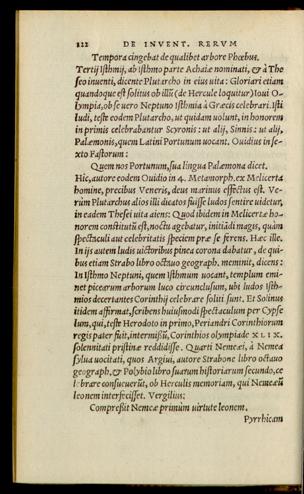 122 DE INVENT. RERVM
Tempora cingebat de qualibet arbore Phœbus.
Tertij Isthmij, ab Isthmo parte Achaiæ nominati, & à The
seo inuenti, dicente Plutarcho in eius uita: Gloriari etiam
quandoque est solitus ob illũ (de Hercule loquitur) Ioui O-
lympia, ob se uero Neptuno Isthmia à Græcis celebrari. Isti
ludi, teste eodem Plutarcho, ut quidam uolunt, in honorem
in primis celebrabantur Scyronis: ut alij, Sinnis: ut alij,
Palæmonis, quem Latini Portunum uocant. Ouidius in se-
xto Fastorum:
Quem nos Portunum, sua lingua Palæmona dicet.
Hic, autore eodem Ouidio in 4. Metamorph. ex Melicerta
homine, precibus Veneris, deus marinus effectus est. Ve-
rùm Plutarchus alios illi dicatos fuisse ludos sentire uidetur,
in eadem Thesei uita aiens: Quod ibidem in Melicertæ ho-
norem constitutũ est, noctu agebatur, initiã́di magis, quàm
spectaculi aut celebritatis speciem præ se ferens. Hæc ille.
In ijs autem ludis uictoribus pinea corona dabatur, de qui-
bus etiam Strabo libro octauo geograph. meminit, dicens:
In Isthmo Neptuni, quem Isthmum uocant, templum emi-
net picearum arborum luco circunclusum, ubi ludos Isth-
mios decertantes Corinthij celebrare soliti sunt. Et Solinus
itidem affirmat, scribens huiusmodi spectaculum per Cypse
lum, qui, teste Herodoto in primo, Periandri Corinthiorum
regis pater fuit, intermissũ, Corinthios olympiade XLIX.
solennitati pristinæ reddidisse. Quarti Nemeæi, à Nemea
sylua uocitati, quos Argiui, autore Strabone libro octauo
geograph. & Polybio libro suarum historiarum secundo, ce
lebrare consueuerũt, ob Herculis memoriam, qui Nemeæũ
leonem interfecisset. Vergilius:
Compreßit Nemeæ primùm uirtute leonem.
Pyrrhicam